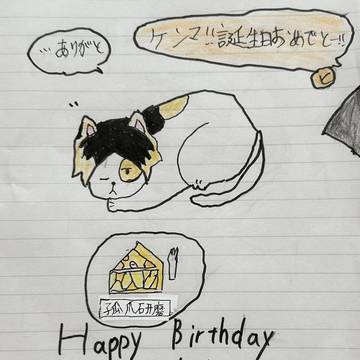 ケンマ!!誕生日おめでとー!!
…ありがと
孤爪研磨
Happy Birthday